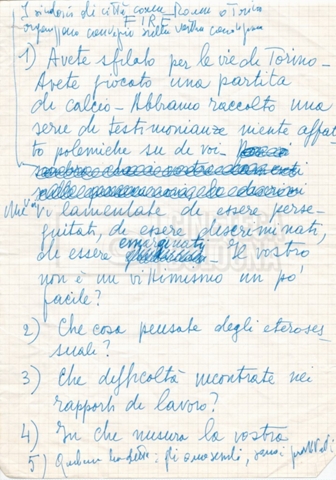 I sindaci di città come Roma o Torino
FIRE
organizzano convegni sulla vostra condizione
1) Avete sfilato per le vie di Torino -
Avete giocato una partita
di calcio - Abbiamo raccolto una
serie di testimonianze niente affat
to polemiche su di voi.
vi lamentate di essere perse-
guitati, di essere discriminati,
emarginati
di essere - Il vostro
non è un vittimismo un po'
facile?
2) Che cosa pensate degli eteroses-
suali?
3) Che difficoltà incontrate nei
rapporti di lavoro?
4) In che misura la vostra
5) Qualcuno ha detto: gli omosessuali, senza